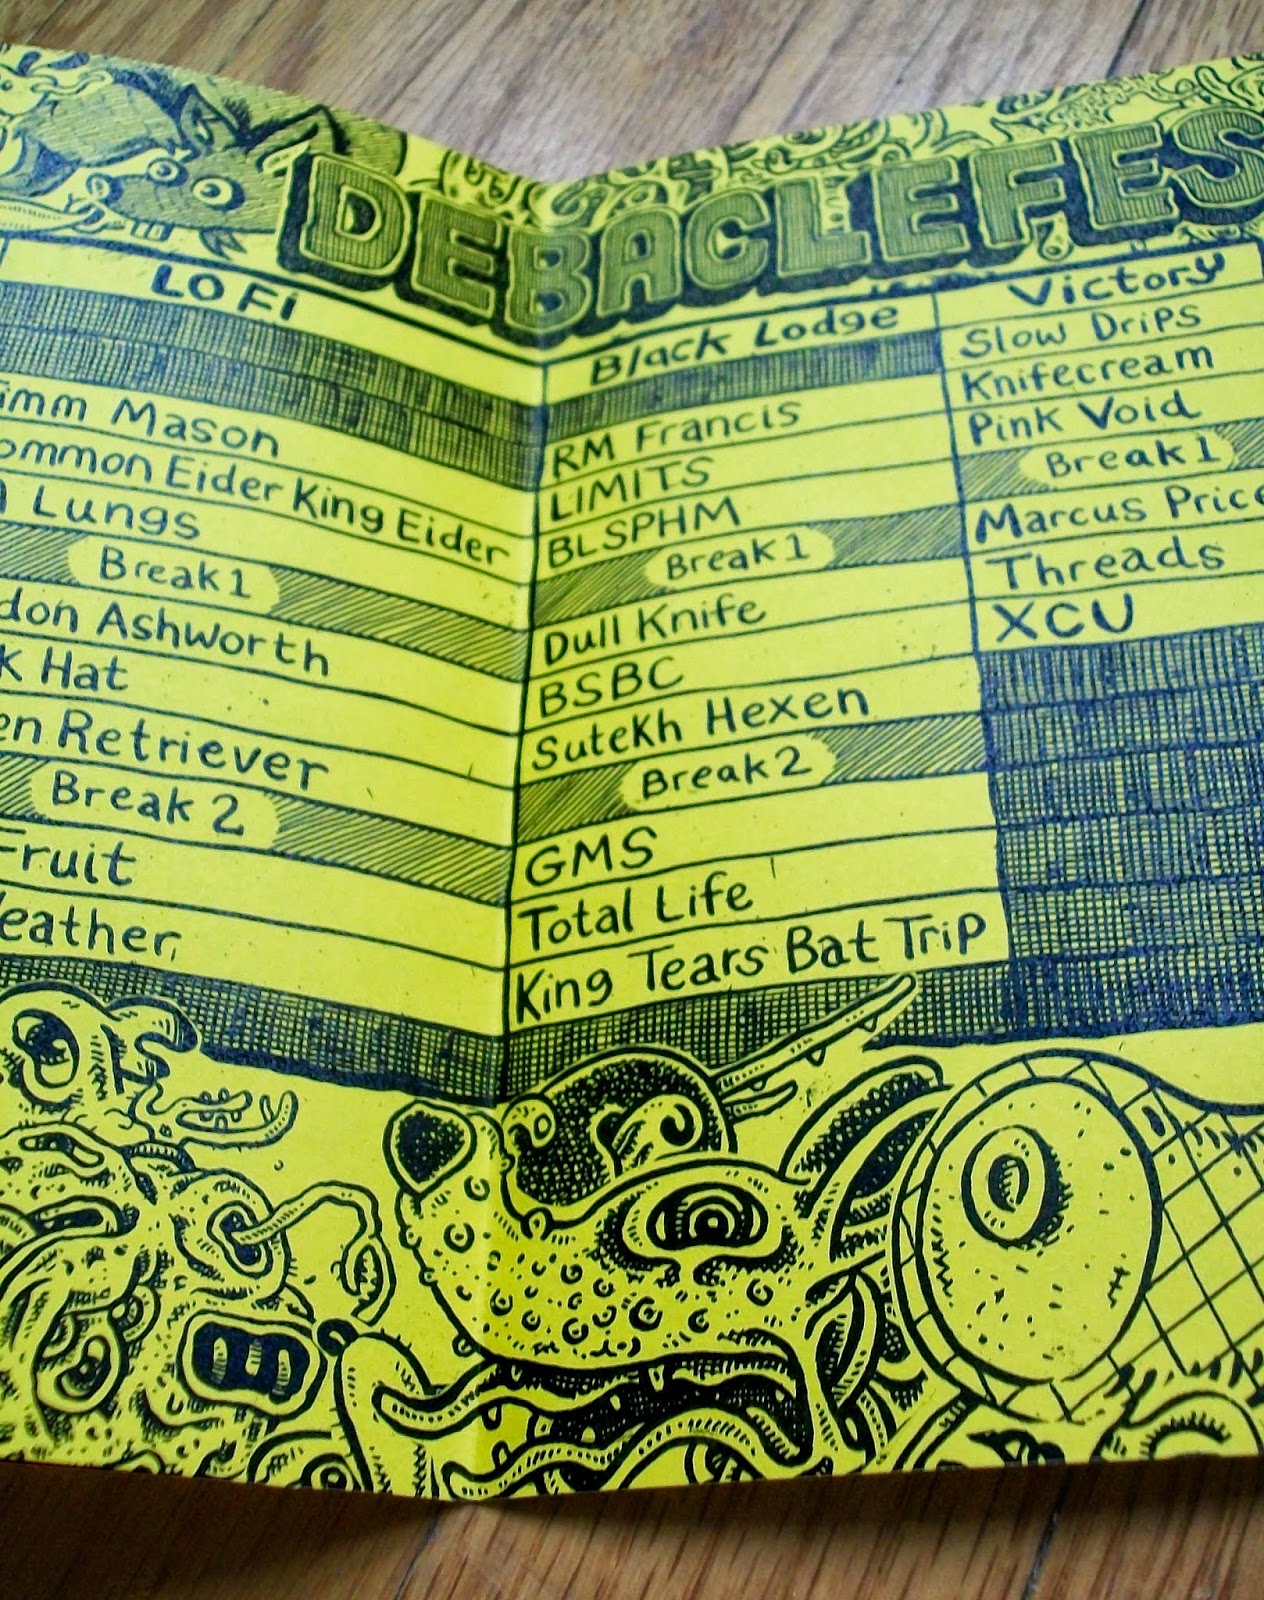 DEBACLEFES
LO Fi
Mason
Eider King Eider
Lungs
Break 1
Ashworth
Hat
Retriever
Break 2
Fruit
Black Lodge
RM Francis
LIMITS
BLSPHM
Break 1
Dull Knife
BSBC
Sutekh Hexen
Break 2
GMS
Total Life
King Tears Bat Trip
Victory
Slow Drips
Knifecream
Pink Void
Break 1
Marcus Price
Threads
XCU